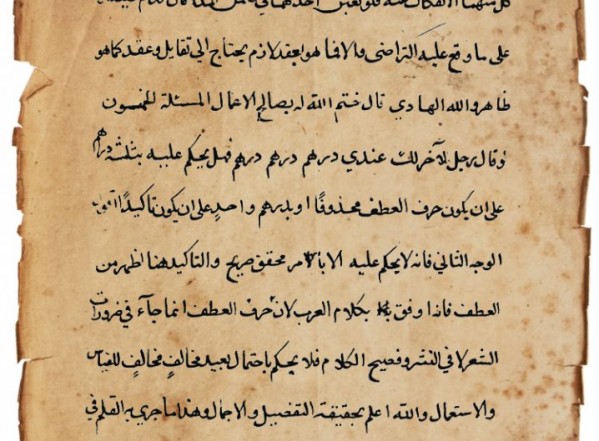 على ما وقع عليه التراضي والا فما هو بعقد لازم يحتاج الى تقايل وعقد كما هو
ظاهر والله الهادي قال ختم الله له بصالح الاعمال المسئلة الخمسون
وقال رجل لآخر لك عندي درهم درهم درهم فهل يحكم عليه بثلثة دراهم
على ان يكون حرف العطف محذوفًا او بدرهم واحدٍ على ان يكون تاكيدًا اقول
الوجه الثاني فانه لا يحكم عليه الا بأمر محقق صريح والتاكيد هنا اظهر من
العطف فانه اوفق بكلام العرب لان حرف العطف انما جآء في ضرورات
الشعر لا في النثر وفصيح الكلام فلا يحكم باحتمال بعيد مخالفٍ مخالفٍ للقياس
والاستعمال والله اعلم بحقيقة التفصيل والاجمال وهذا ما جرى به القلم في